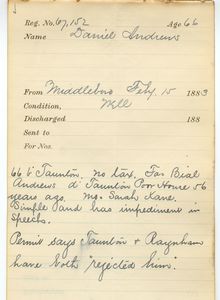 Reg. No. 67,152 Age 66
Name Daniel Andrews
From Middleboro Feby. 15 1883
Condition, Well
Discharged 188
Sent to
For Nos.
66 b Taunton, no tax. Fa Bial
Andrews d Taunton Poor House 56
years ago. Mo. Sarah Kane.
Simple and has impediment in
speech.
Permit says Taunton & Raynham
have both "rejected him".